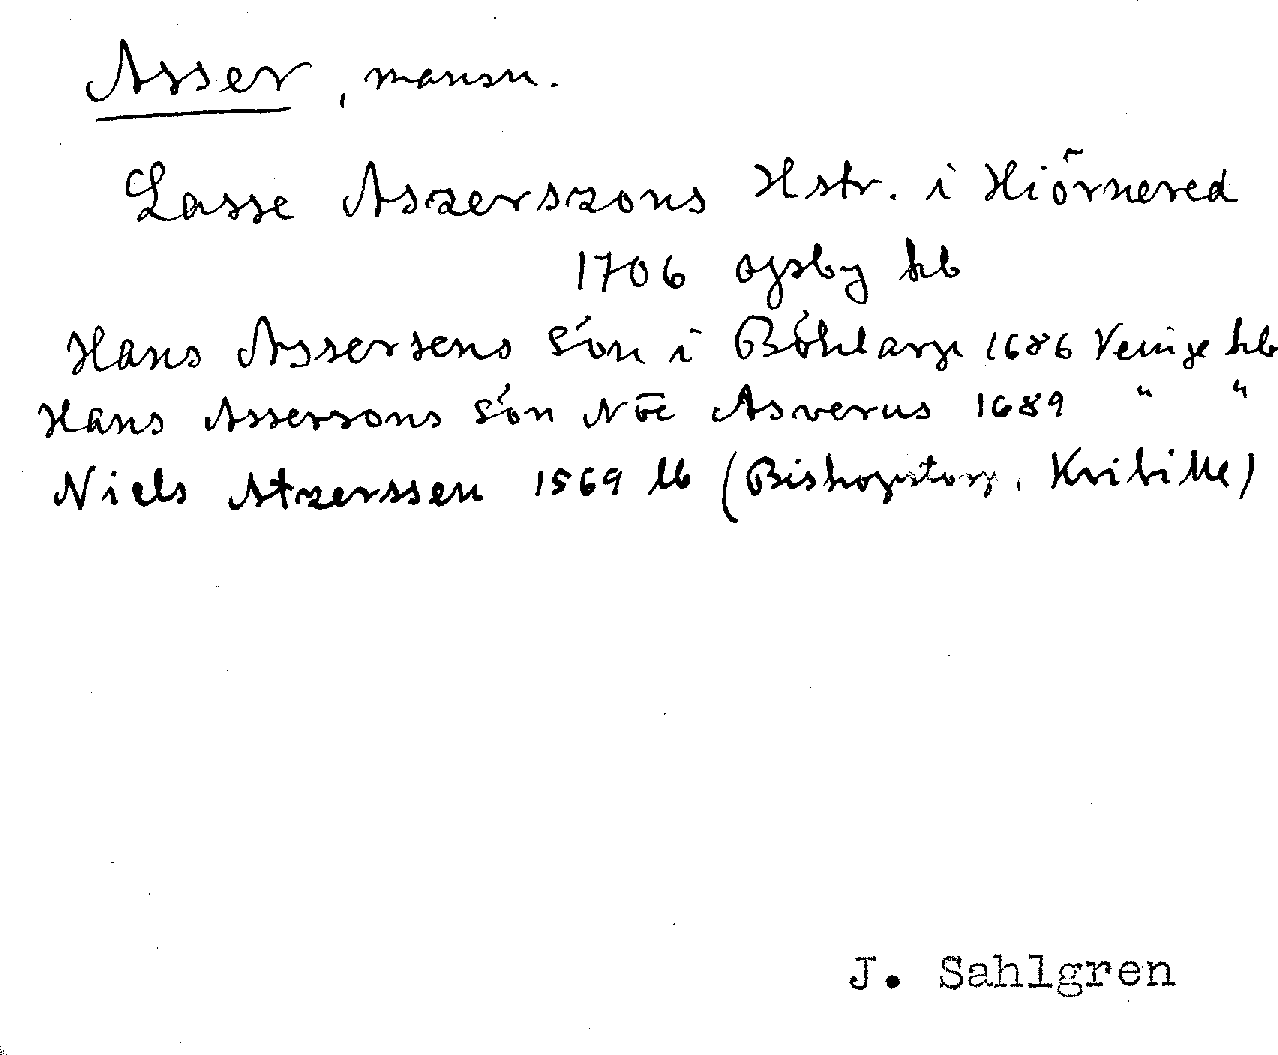 Asser, mansn.
Lasse Aszerszons Hstr. i Hiörnered
1706 Ojsby kb
Hans Assersens Són i Bóhlarp 1686 Veinge kb
Hans Assersons Són Nōe Asverus 1689 " "
Niels Atzerssen 1569 lb (Biskopstorp, Kvibille)
J. Sahlgren